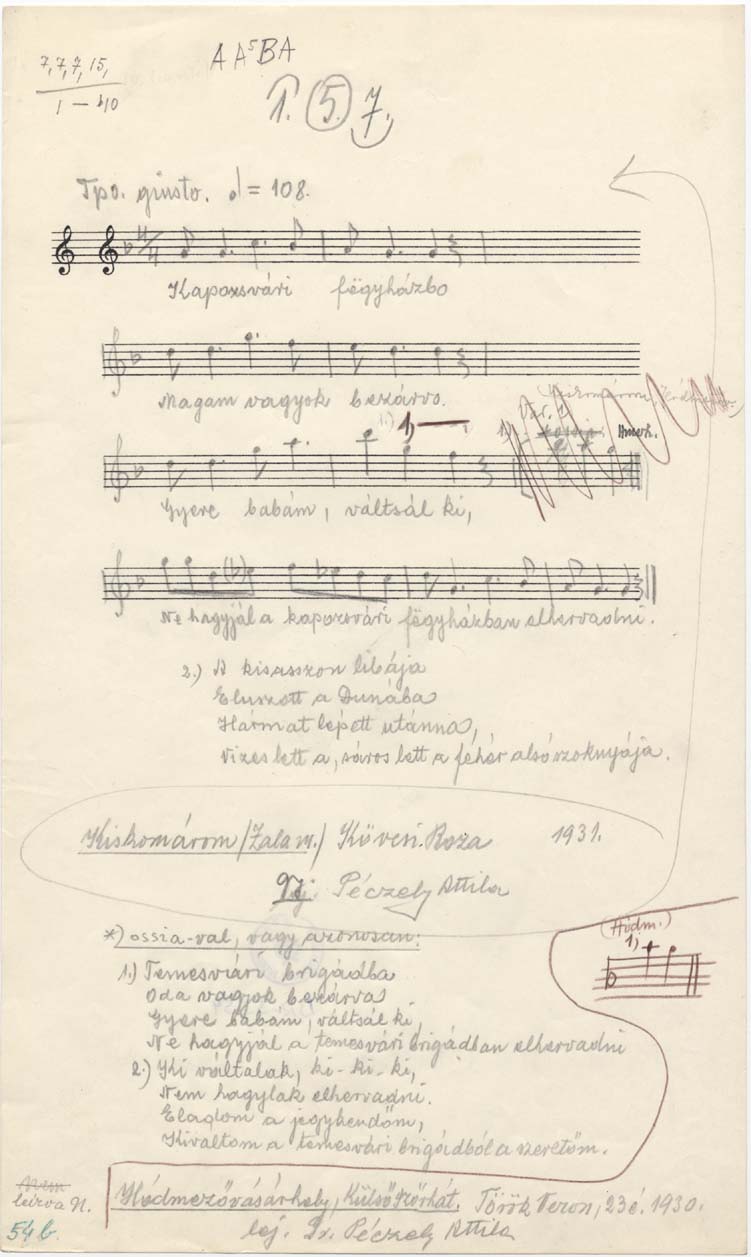 7, 7, 7, 15,
1 – b10
A A⁵ B A
1. 5. 7.
Tpo. giusto. ♩ = 108.
4/4
Kaposvári fëgyházbo
Magam vagyok bezárvo.
Var. 1
1)
Hmvh.
Gyere babám, váltsál ki,
(b)
Ne hagyjál a kaposvári fëgyházban elhervadni.
2.) A kisasszon libája
Eluszott a Dunába
Hármat lépett utánnia,
Vizes lett a, sáros lett a fehér alsószoknyája.
Kiskomárom /Zala m./ Kövesi Roza 1931.
Péczely Attila
*) ossia-val, vagy azonosan:
(Hódm.)
1)
1.) Temesvári brigádba
Oda vagyok bezárva
Gyere babám, váltsál ki,
Ne hagyjál a temesvári brigádban elhervadni
2.) Ki váltalak, ki-ki-ki,
Nem hagylak elhervadni.
Eladom a jegykendőm,
Kiváltom a temesvári brigádból a szeretőm.
Hódmezővásárhely, Külső Szőrhát. Török Veron, 23 é. 1930.
lej. Dr. Péczely Attila
leírva N.
54 b.